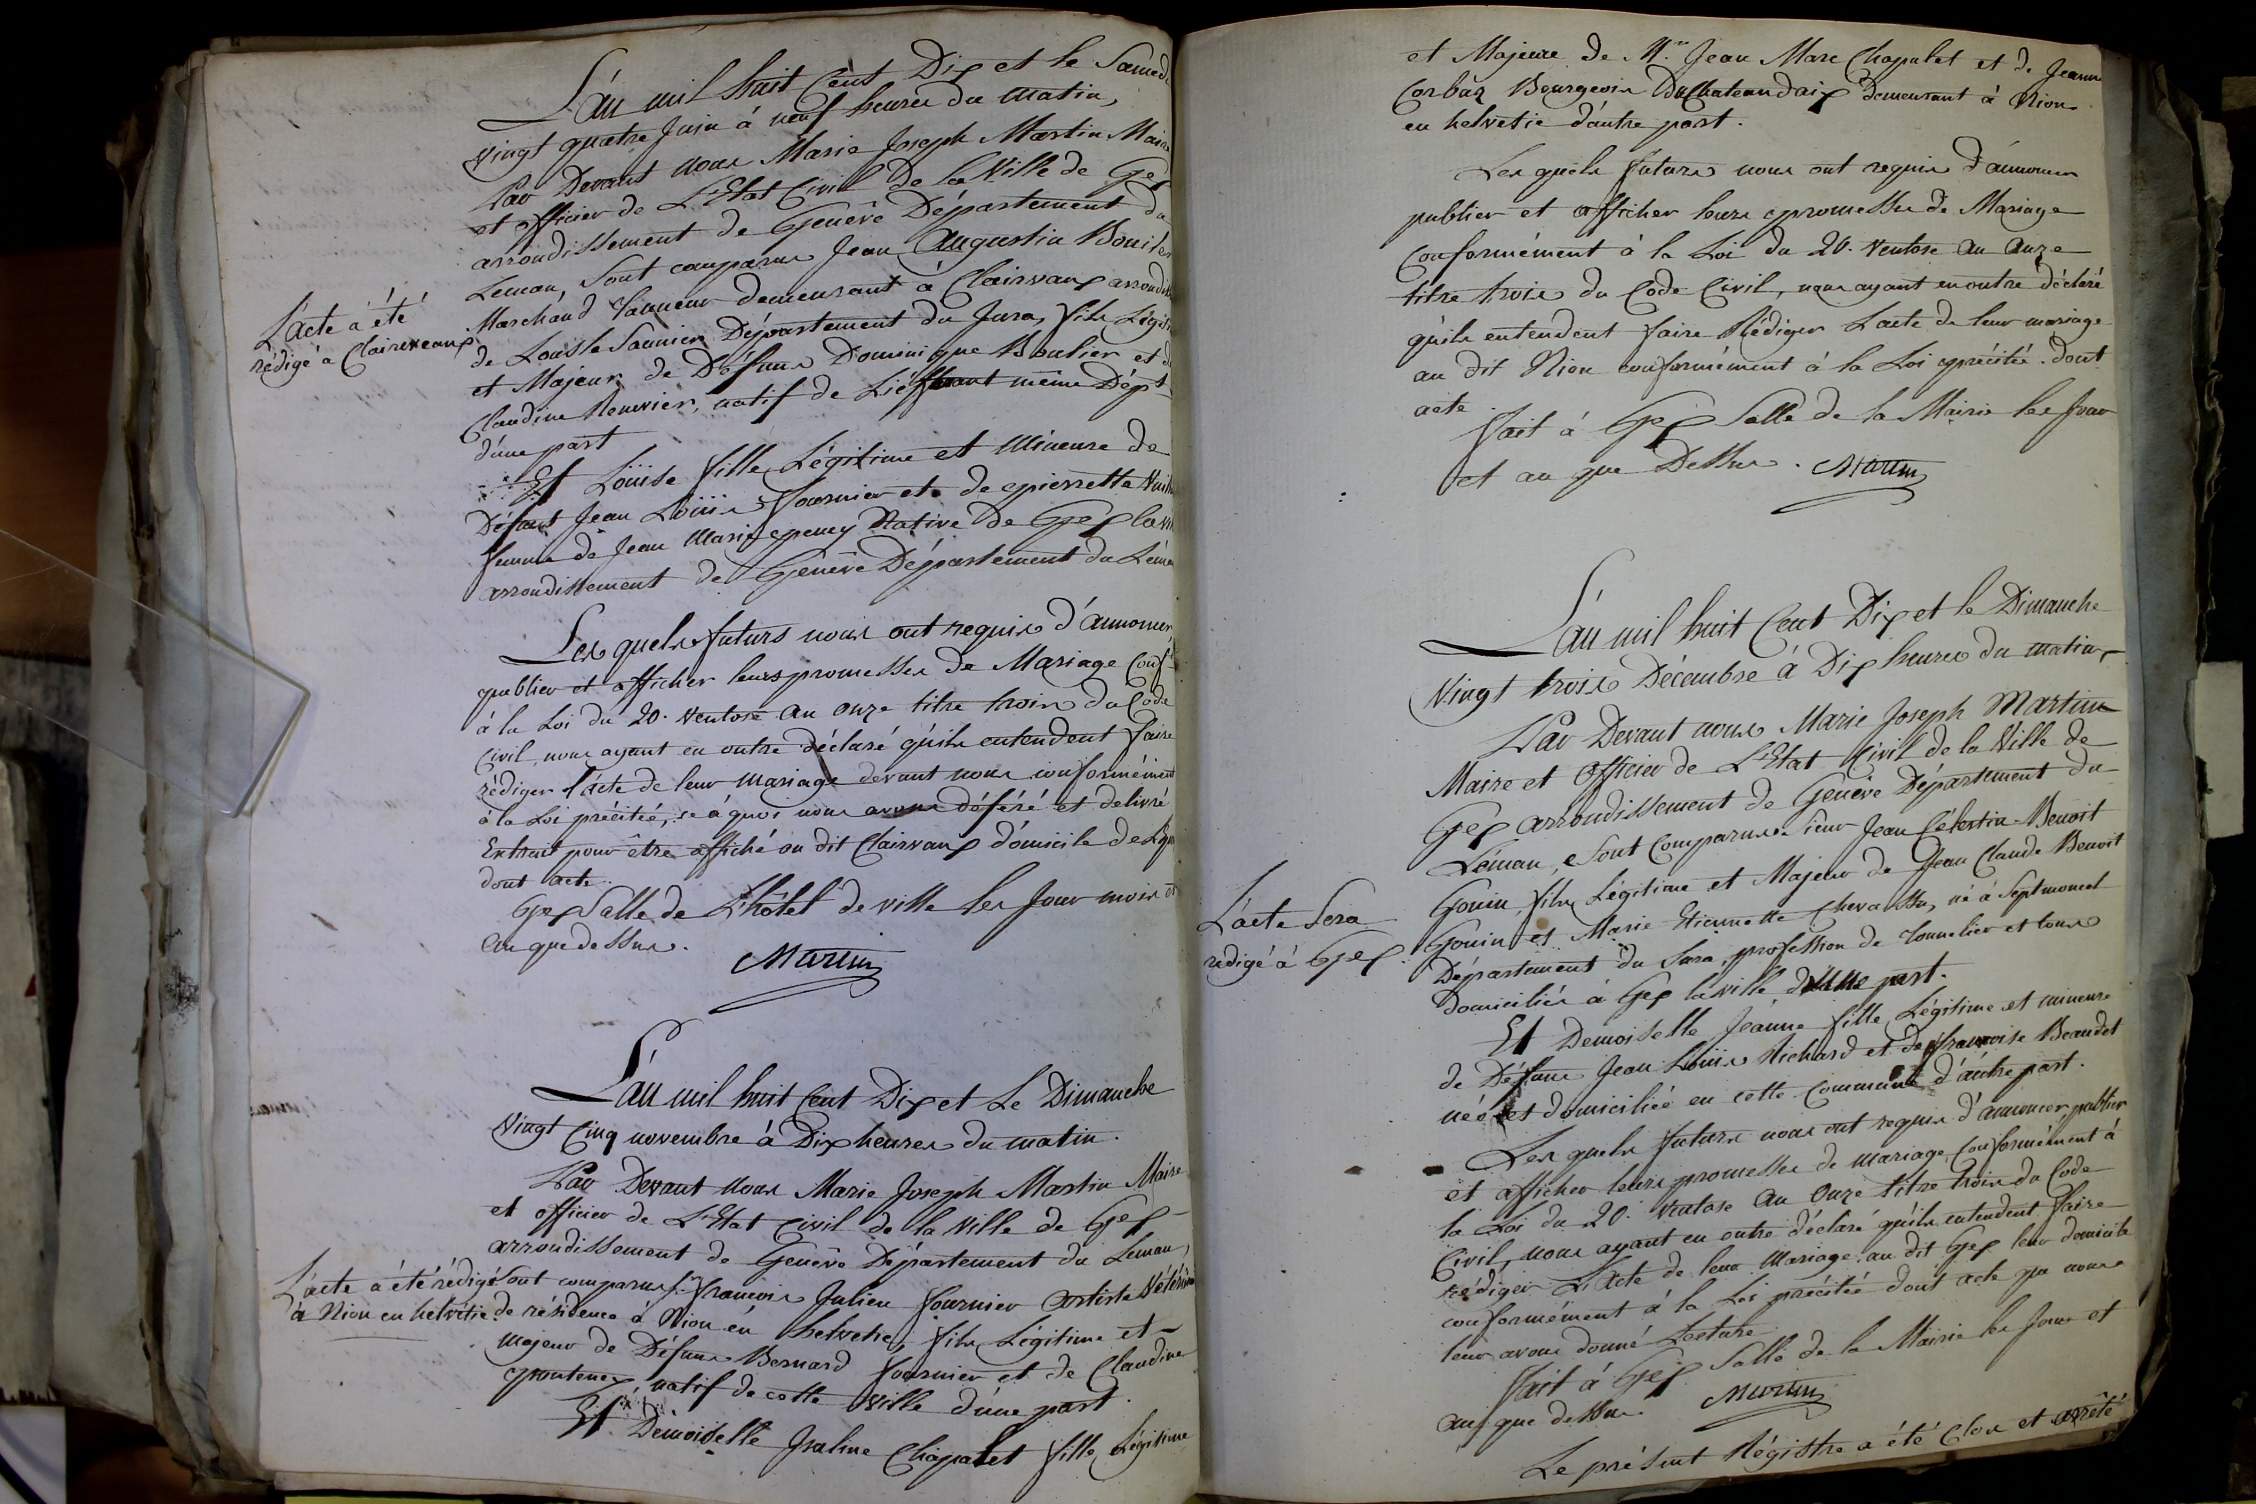 L'an mil huit Cent Dix et le Samedi
vingt quatre Juin à neuf heures du matin,
Par Devant nous Marie Joseph Martin Maire
et officier de L'Etat Civil De la Ville de Gex
arrondissement de Genêve Département du
Leman, Sont comparus Jean Augustin
Marchand Tanneur demeurant à Clairvaux arrondis
de Lons le Saunier Département du Jura, fils Légiti
et Majeur de Défunt Dominique Boulier et de
Claudine natif de même Dépt
d'une part
L'acte a été
rédigé a Clairveaux
Et Loüise fille Légitime et Mineure de
Défunt Jean Loüis Fournier et de pierrette
femme de Jean Marie Native de Gex la vi
arrondissement de Genêve Département du Léma
Les quels futurs nous ont requis d'annoncer,
publier et afficher leurs promesses de Mariage Conf
à la Loi du 20. Ventose an onze titre trois du Code
Civil, nous ayant en outre déclaré qu'ils entendent faire
rédiger l'acte de leur mariage devant nous conformément
à la Loi précitée, ce à quoi nous avons déféré et delivré
Extrait pour être affiché au dit Clairvaux domicile de
dont acte.
Gex Salle de L'hôtel de ville les Jour mois et
an que dessus.
Martin
L'an mil huit Cent Dix et Le Dimanche
Vingt Cinq novembre à Dix heures du matin.
Par Devant nous Marie Joseph Martin Maire
et officier de L'Etat Civil de la Ville de Gex
arrondissement de Genêve Département du Leman,
Sont comparus Sr. francois Julien fournier Artiste Vétérin
de résidence à Nion en helvetie, fils Légitime et
majeur de Défunt Bernard fournier et de Claudine
natif de cette Ville d'une part.
L'acte a été rédigé
à Nion en helvétie.
Et Demoiselle Chapalet fille Légitime
et Majeure de Mr. Jean Marc Chapalet et de Jeanne
Corbaz Bourgeois Du Chateaudaix demeurant à Nion
en helvetie d'autre part.
Les quels futurs nous ont requis d'annoncer
publier et afficher leurs promesses de Mariage
Conformément à la Loi du 20. Ventose an onze
titre trois du Code Civil, nous ayant en outre déclaré
qu'ils entendent faire Rédiger L'acte de leur mariage
au dit Nion conformément à la Loi précitée. dont
acte.
fait à Gex Salle de la Mairie les Jour
et an que Dessus. Martin
L'an mil huit Cent Dix et le Dimanche
Vingt trois Décembre à Dix heures du matin,
Par Devant nous Marie Joseph Martin
Maire et Officier de L'Etat Civil de la Ville de
Gex arrondissement de Genève Département du
Léman, Sont Comparus Sieur Jean Célestin Benoit
Gouin, fils Légitime et Majeur de Jean Claude Benoit
Gouin et Marie Etiennette Chevassu, né à Septmoncel
Département du Jura, profession de Tonnelier et tous
Domiciliés à Gex la ville d'une part.
L'acte Sera
redigé à Gex
Et Demoiselle Jeanne fille Légitime et mineure
de Défunt Jean Loüis Richard et de françoise Beaudet
née et domiciliée en cette commune d'autre part.
Les quels futurs nous ont requis d'annoncer publier
et afficher leurs promesses de mariage, Conformément à
la Loi du 20. Ventose an Onze titre trois du Code
Civil, nous ayant en outre déclaré qu'ils entendent faire
rédiger L'Acte de leur Mariage au dit Gex leur domicile
conformément à la Loi précitée dont acte que nous
leur avons donné Lecture.
fait à Gex Salle de la Mairie les Jour et
an que dessus. Martin
Le présent Régistre a été Clos et arrêté